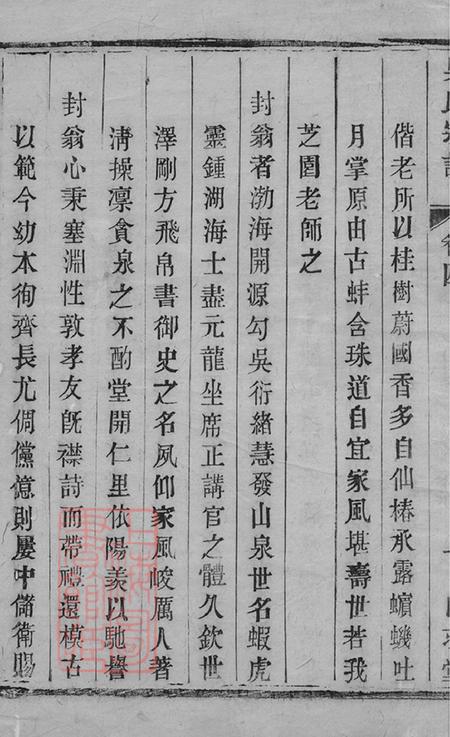 偕老所以桂樹蔚國香多自仙椿承露蠙蟣吐
月掌原由古蚌含珠道自宜家風堪壽世若我
芝園老師之
封翁者渤海開源勾吳衍緒慧發山泉世名蝦虎
靈鍾湖海士盡元龍坐席正講官之體久欽世
澤剛方飛帛書御史之名夙仰家風峻厲人著
淸操凛貪泉之不酌堂開仁里依陽羨以馳譽
封翁心秉塞淵性敦孝友旣襟詩而帶禮還模古
以範今幼本徇齊長尤倜儻億則屢中儲衛賜